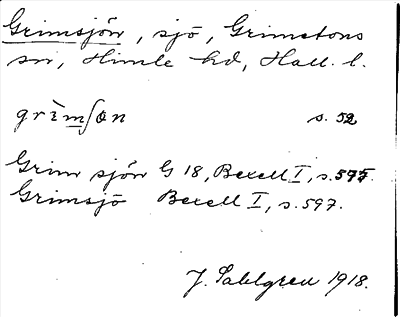 Grimsjön, sjö, Grimetons
sn, Himle hd, Hall. l.
grìmʃøn s. 52
Grim sjön G 18, Bexell I, s. 595.
Grimsjö Bexell I, s. 597.
J. Sahlgren 1918.